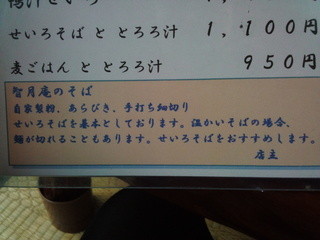 鴨汁せいろ
せいろそば と とろろ汁 1,100円
麦ごはん と とろろ汁 950円
智月庵のそば
自家製粉、あらびき、手打ち細切り
せいろそばを基本としております。温かいそばの場合、
麺が切れることもあります。せいろそばをおすすめします。
店主